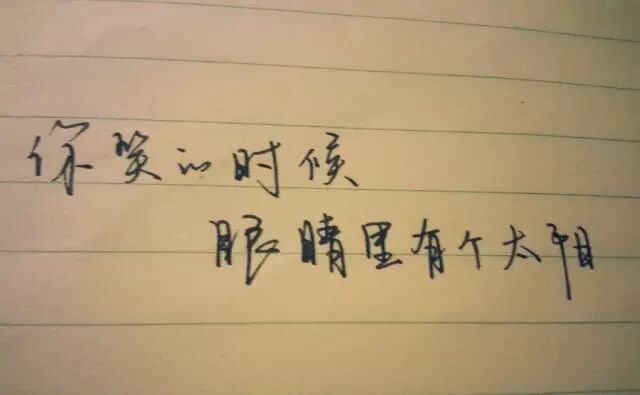 你笑的时候
眼睛里有个太阳